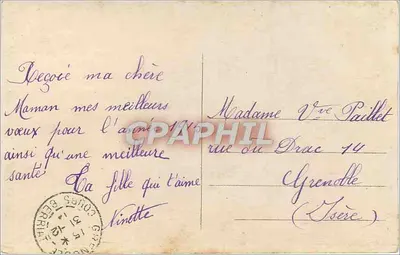 Reçoié ma chère
Maman mes meilleurs
vœux pour l'anné
ainsi qu'une meilleure
santé
Ta fille qui t'aime
Ninotte
Madame Vve Paillet
rue du Drac 14
Grenoble
(Isère)
CPAPHIL
GRENOBLE
COURS BERRIAT
15
31-12